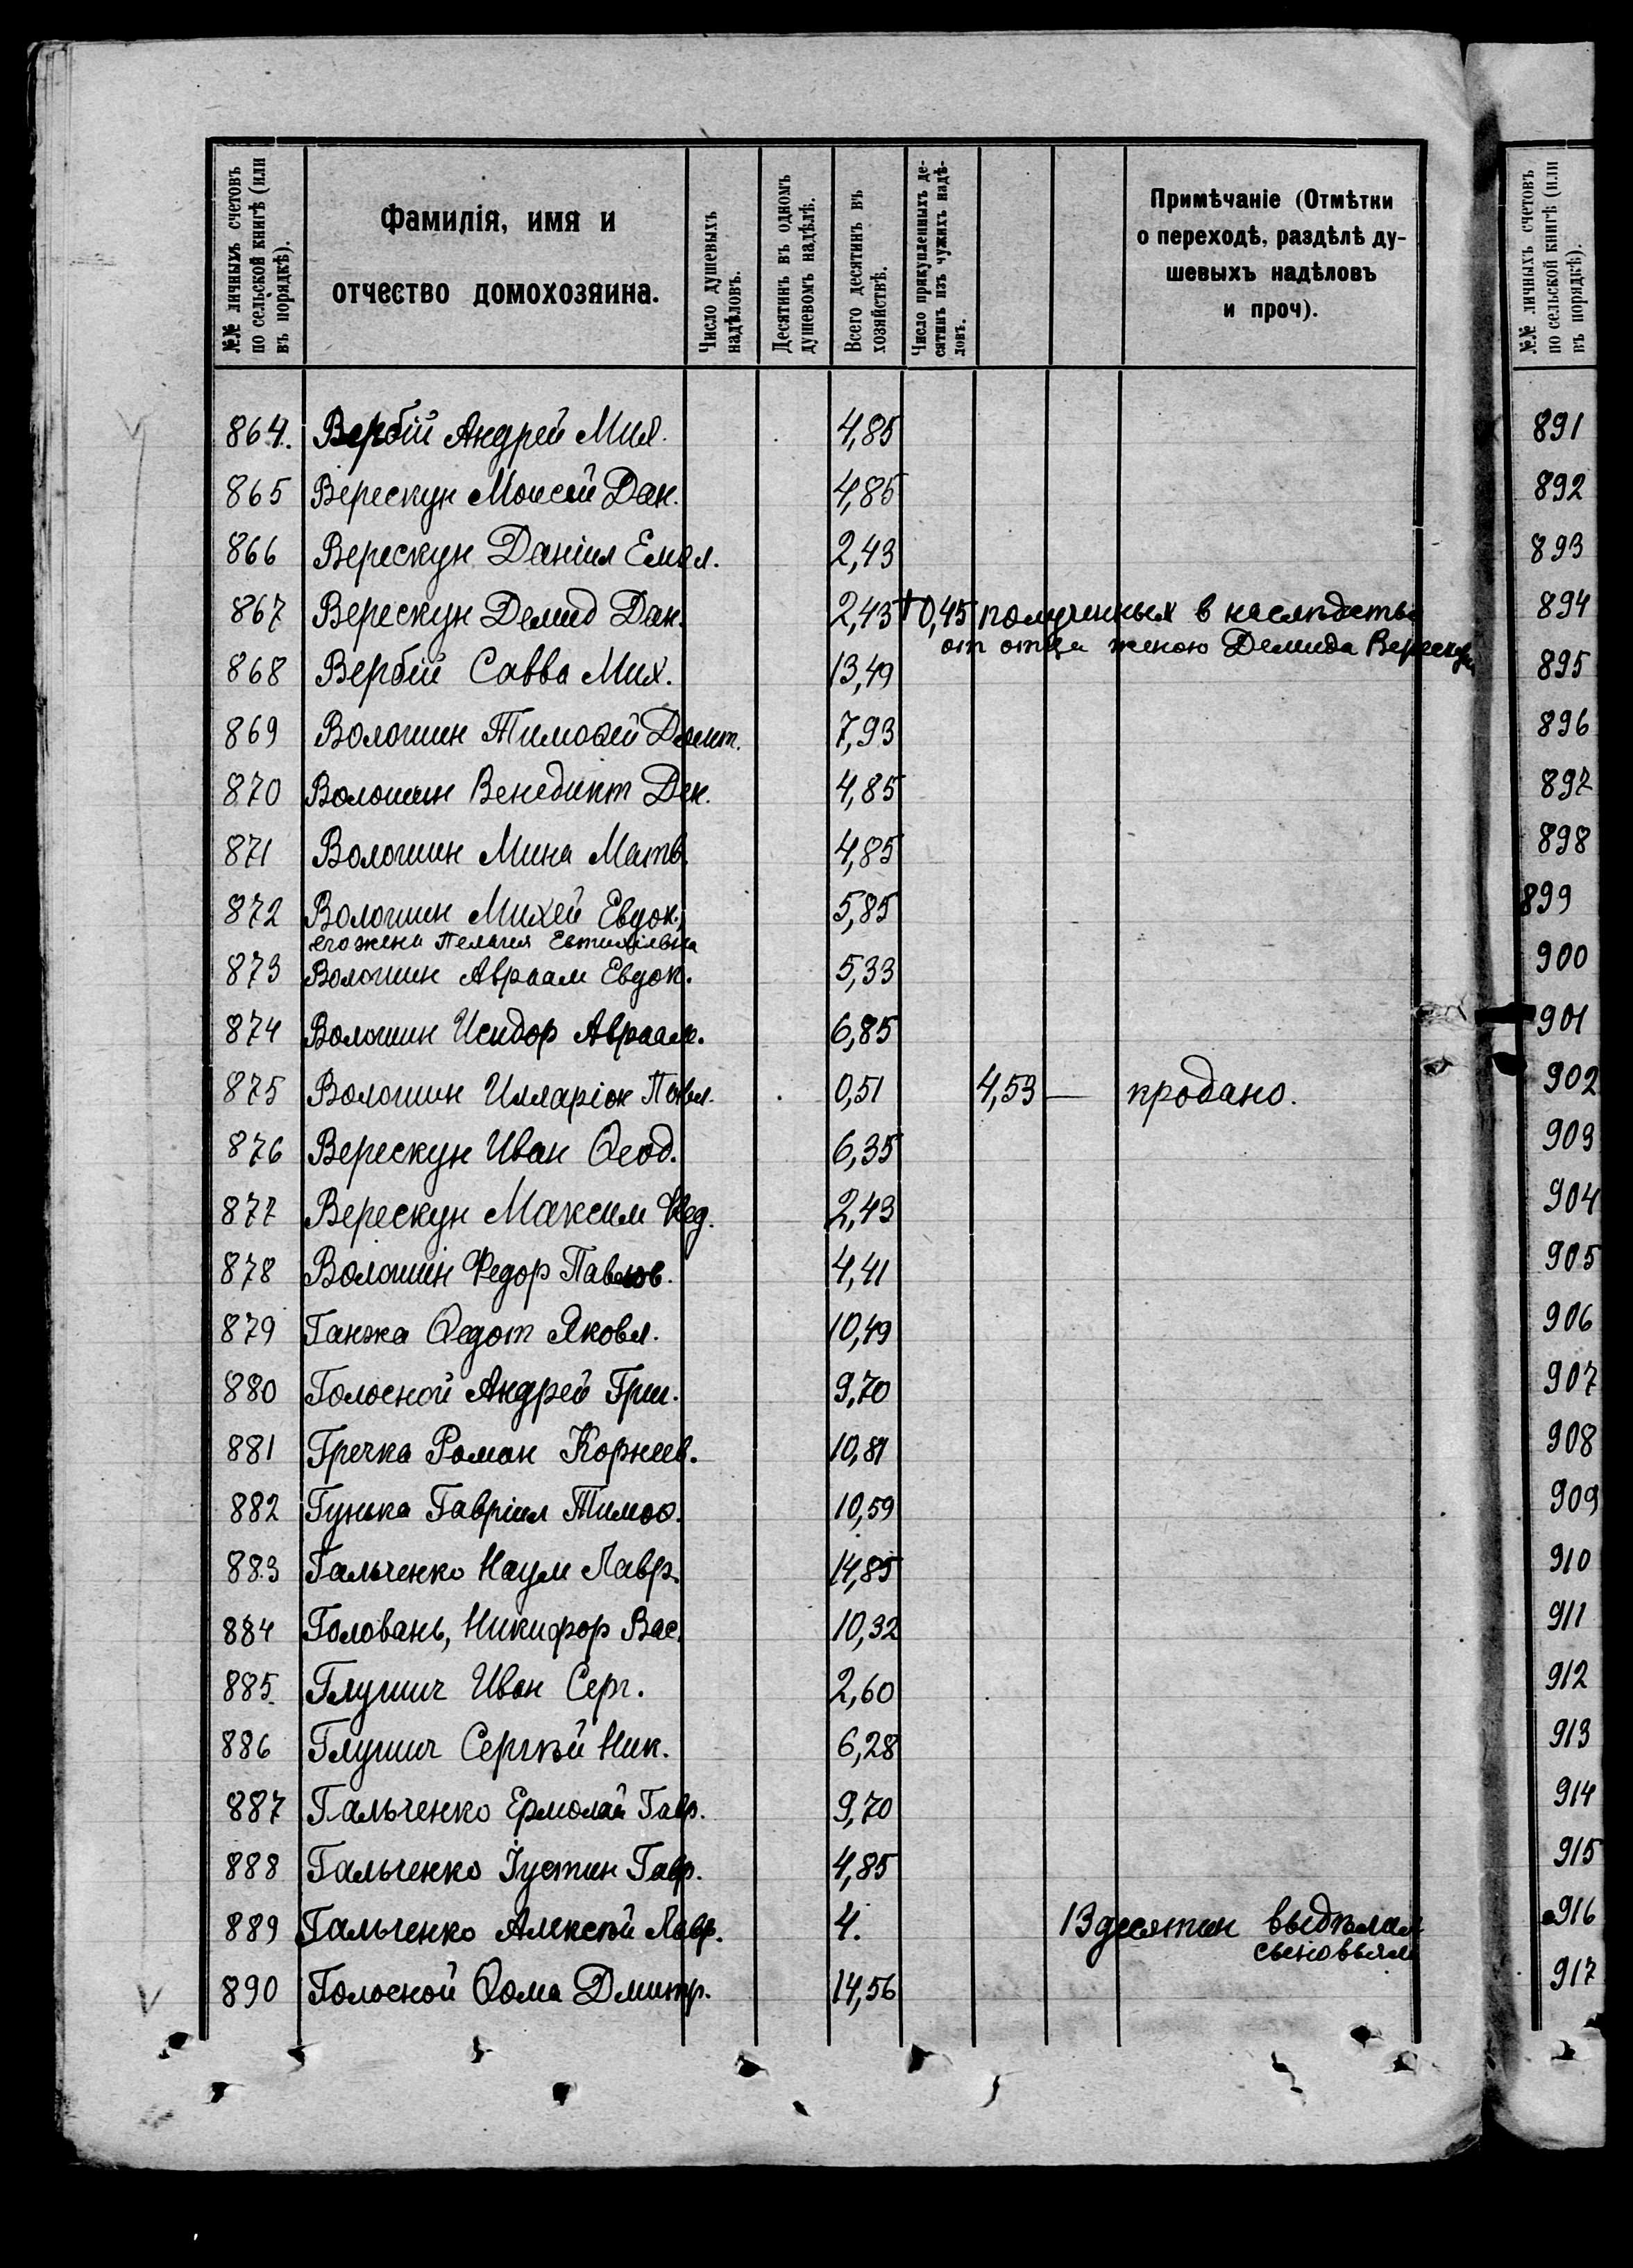 №№ личныхъ счетовъ
по сельской книгѣ (или
въ порядкѣ).
Фамилія, имя и
отчество домохозяина.
Число душевыхъ
надѣловъ.
Десятинъ въ одномъ
душевомъ надѣлѣ.
Всего десятинъ въ
хозяйствѣ.
Число прикупленныхъ де-
сятинъ изъ чужихъ надѣ-
ловъ.
Примѣчаніе (Отмѣтки
о переходѣ, раздѣлѣ ду-
шевыхъ надѣловъ
и проч).
864. Вербій Андрей Мих. 4,85
865 Верескун Моисей Дан. 4,85
866 Верескун Даніил Емел. 2,43
867 Верескун Демид Дан. 2,43 + 0,45 полученных в наслѣдство
от отца женою Демида Верескун
868 Вербій Савва Мих. 13,49
869 Волошин Тимоѳей Дмит. 7,93
870 Волошин Венедикт Дем. 4,85
871 Волошин Мина Матв. 4,85
872 Волошин Михей Евдок, 5,85
его жена Пелагия
873 Волошин Авраам Евдок. 5,33
874 Волошин Исидор Авраам. 6,85
875 Волошин Илларіон Павл. 0,51 4,53 — продано.
876 Верескун Иван Ѳеод. 6,35
877 Верескун Максим Фед. 2,43
878 Волошин Федор Павлов. 4,41
879 Ганжа Ѳедот Яковл. 10,49
880 Голосной Андрей Гри. 9,70
881 Гречка Роман Корнеев. 10,81
882 Гунька Гавріил Тимоѳ. 10,59
883 Гальченко Наум Лавр. 14,85
884 Головань, Никифор Вас. 10,32
885. Глушич Иван Серг. 2,60
886 Глушич Сергѣй Ник. 6,28
887 Гальченко Ермолай Гавр. 9,70
888 Гальченко Іустин Гавр. 4,85
889 Гальченко Алексѣй Лавр. 4. 13 десятин выдѣлал
сыновьям
890 Голосной Ѳома Дмитр. 14,56
№№ личныхъ счетовъ
по сельской книгѣ (или
въ порядкѣ).
891
892
893
894
895
896
897
898
899
900
901
902
903
904
905
906
907
908
909
910
911
912
913
914
915
916
917